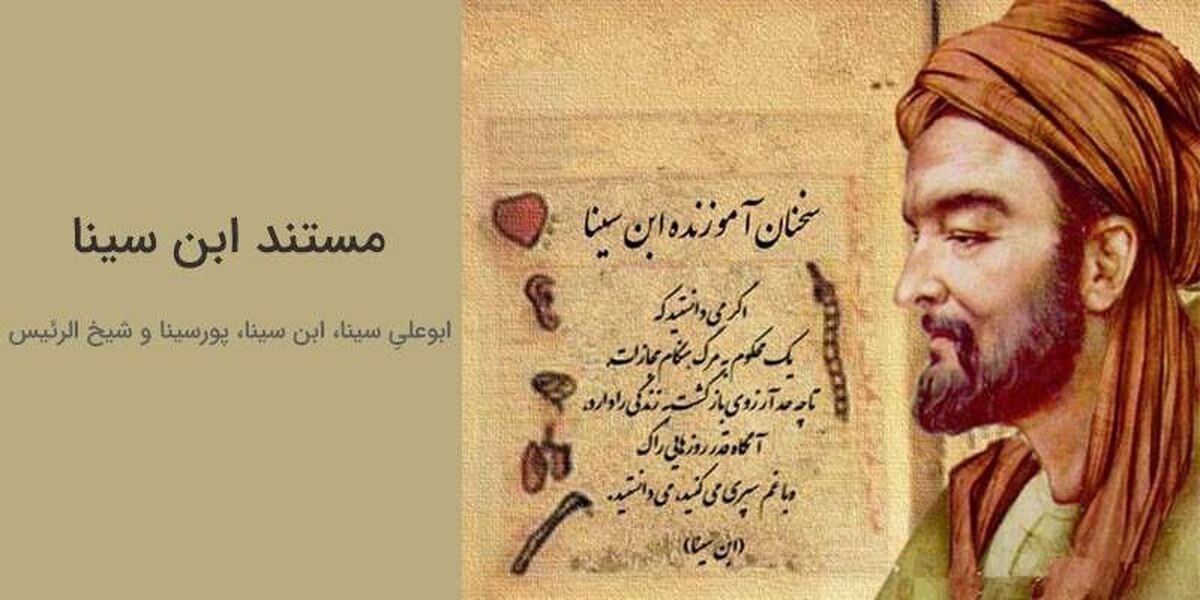 مستند ابن سینا
ابوعلیِ سینا، ابن سینا، پورسینا و شیخ الرئیس
سخنان آموزنده ابن سینا
اگر می دانستید که
یک محکوم به مرگ هنگام مجازات
تا چه حد آرزوی بازگشت به زندگی را دارد
آنگاه قدر روزهایی را که
با غم سپری می کنید، می دانستید.
(ابن سینا)